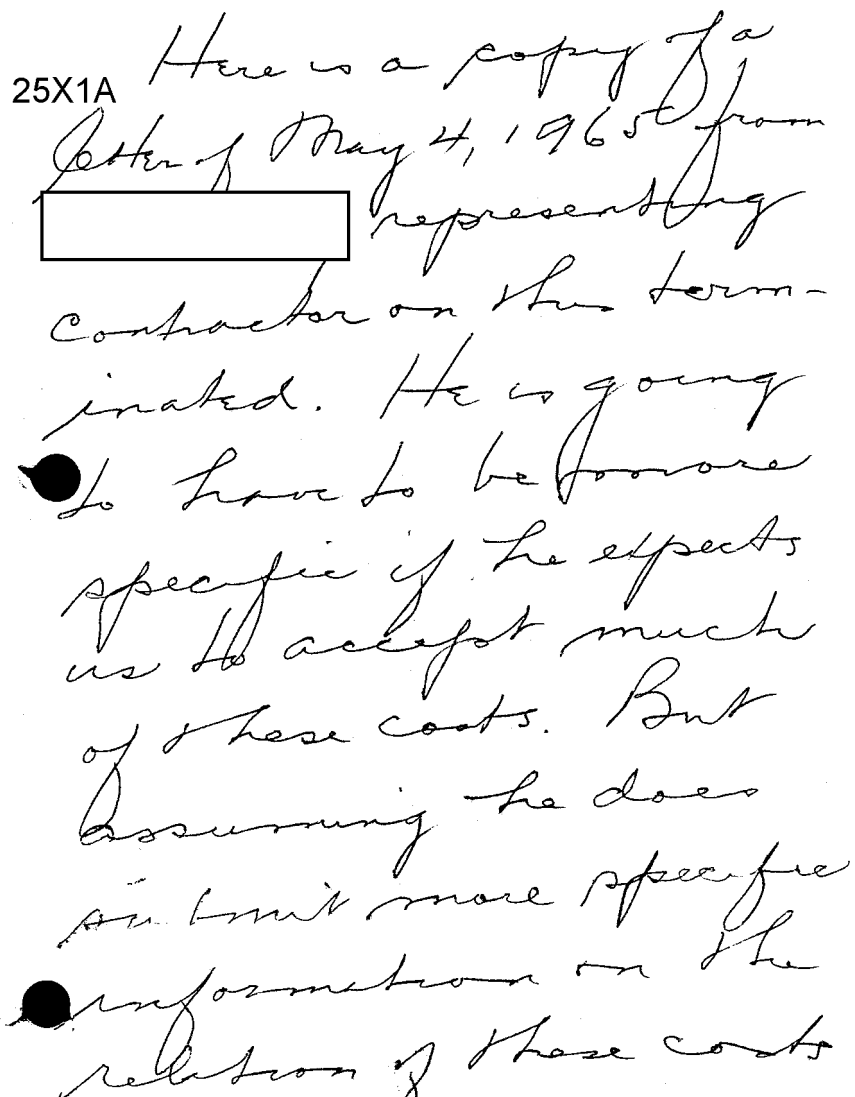 Here is a copy of a
25X1A
letter of May 4, 1965 from
representing
contractor on this term-
inated. He is going
to have to be more
specific if he expects
us to accept much
of these costs. But
assuming he does
submit more specific
information on the
relation of these costs